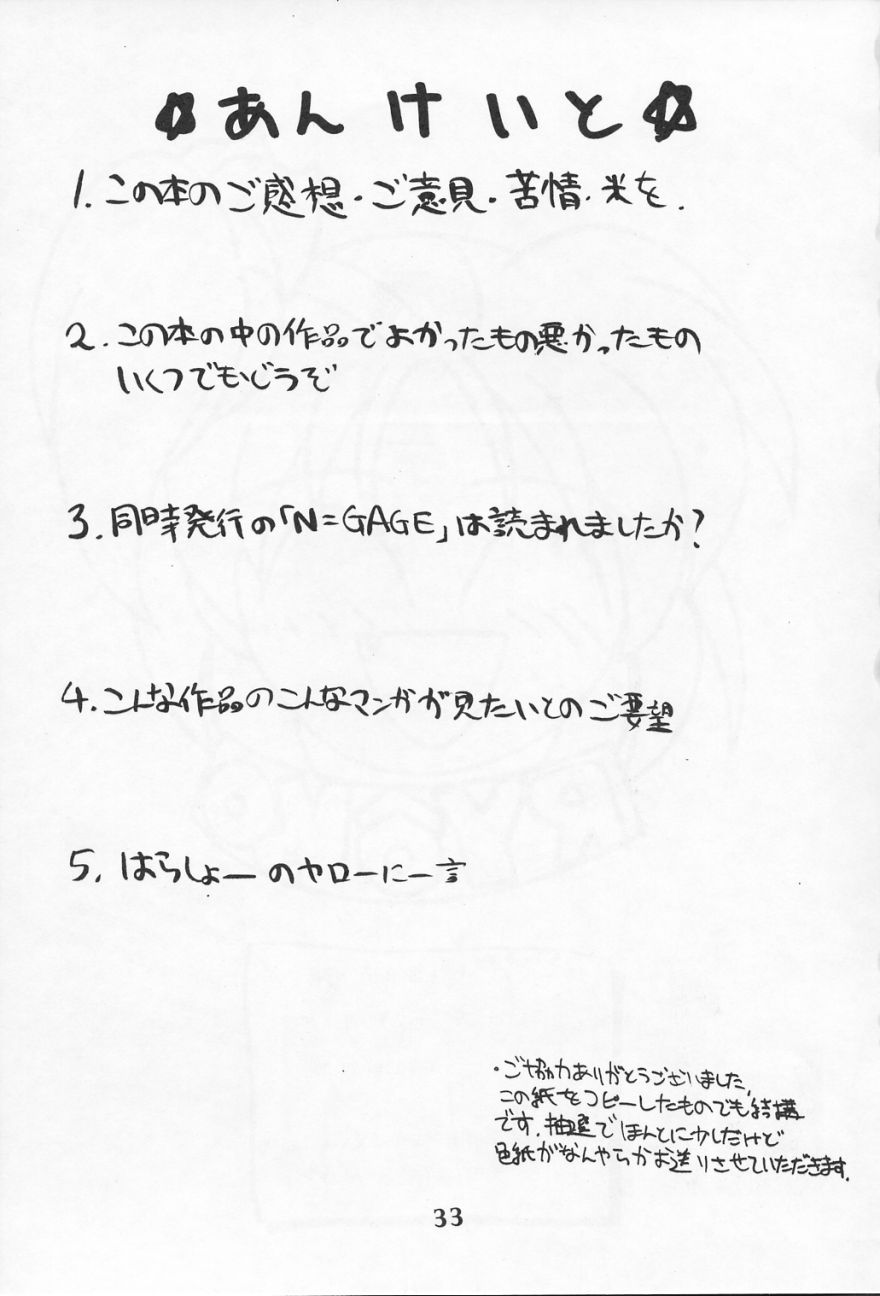 ☆あんけいと☆
1.この本のご感想・ご意見・苦情・米を.
2.この本の中の作品でよかったもの悪かったもの
いくつでもどうぞ
3.同時発行の「N=GAGE」は読まれましたか?
4.こんな作品のこんなマンガが見たいとのご要望
5.はらしょーのヤローに一言
・ご協力ありがとうございました,
この紙をコピーしたものでも結構
です.抽選でほんとに少しだけど
色紙かなんやらかお送りさせていただきます.
33